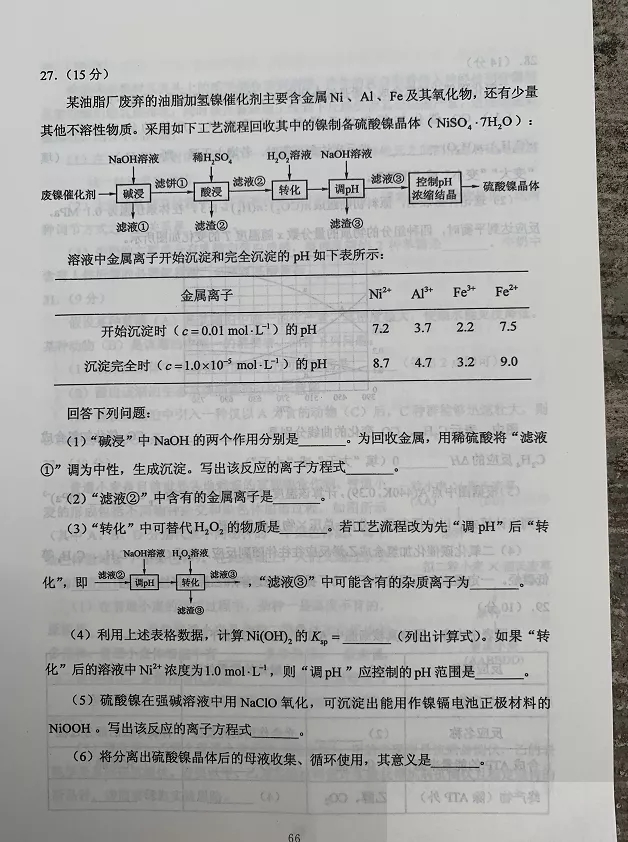 27.（15 分）
某油脂厂废弃的油脂加氢镍催化剂主要含金属 Ni 、 Al 、 Fe 及其氧化物，还有少量
其他不溶性物质。采用如下工艺流程回收其中的镍制备硫酸镍晶体（NiSO₄ ·7H₂O）：
NaOH溶液 稀H₂SO₄ H₂O₂溶液 NaOH溶液
废镍催化剂 碱浸 滤饼① 酸浸 滤液② 转化 调pH 滤液③ 控制pH 浓缩结晶 硫酸镍晶体
滤液① 滤渣② 滤渣③
溶液中金属离子开始沉淀和完全沉淀的 pH 如下表所示：
金属离子 Ni²⁺ Al³⁺ Fe³⁺ Fe²⁺
开始沉淀时（c = 0.01 mol·L⁻¹）的 pH 7.2 3.7 2.2 7.5
沉淀完全时（c = 1.0×10⁻⁵ mol·L⁻¹）的 pH 8.7 4.7 3.2 9.0
回答下列问题：
（1）“碱浸”中 NaOH 的两个作用分别是______。为回收金属，用稀硫酸将“滤液
①”调为中性，生成沉淀。写出该反应的离子方程式______。
（2）“滤液②”中含有的金属离子是______。
（3）“转化”中可替代 H₂O₂ 的物质是______。若工艺流程改为先“调 pH”后“转
NaOH溶液 H₂O₂溶液
化”，即 滤液② 调pH 转化 滤液③ ，“滤液③”中可能含有的杂质离子为______。
滤渣③
（4）利用上述表格数据，计算 Ni(OH)₂ 的 Kₛₚ = ______（列出计算式）。如果“转
化”后的溶液中 Ni²⁺ 浓度为 1.0 mol·L⁻¹，则“调 pH ”应控制的 pH 范围是______。
（5）硫酸镍在强碱溶液中用 NaClO 氧化，可沉淀出能用作镍镉电池正极材料的
NiOOH 。写出该反应的离子方程式______。
（6）将分离出硫酸镍晶体后的母液收集、循环使用，其意义是______。
66